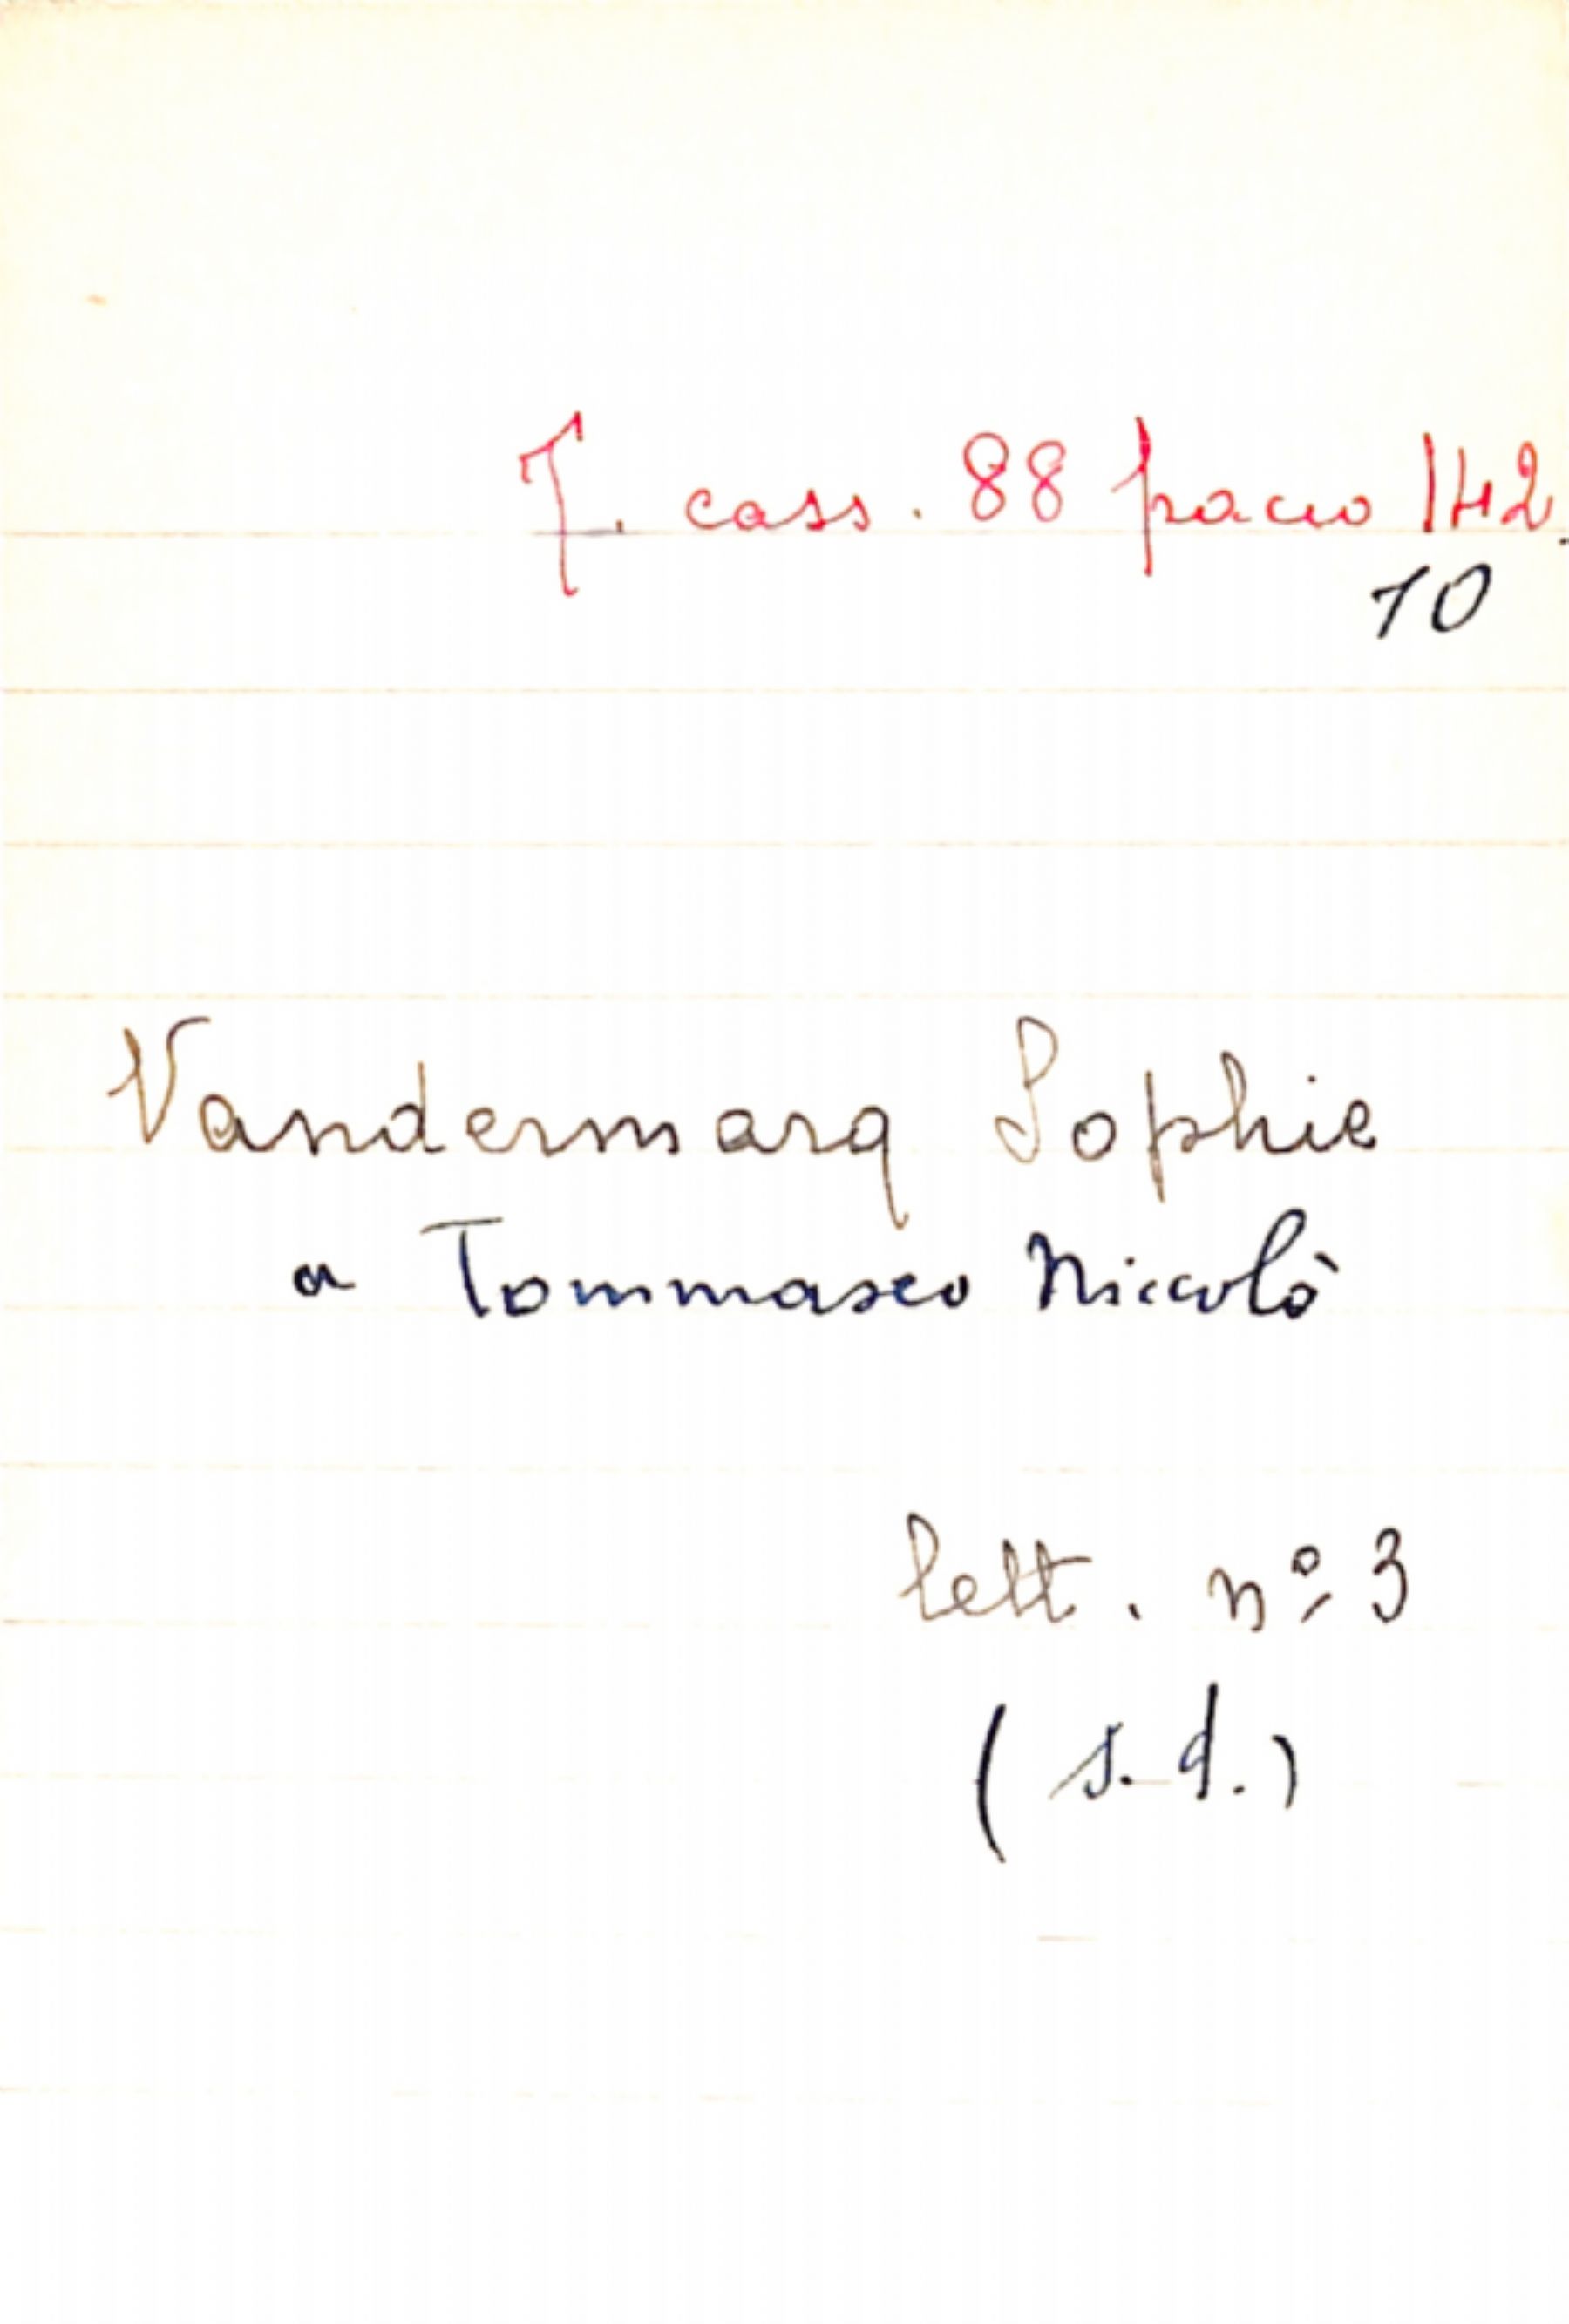 T. cass. 88 pacco 142.
10
Vandermarq Sophie
a Tommaseo Niccolò
lett. nº 3
(s.d.)